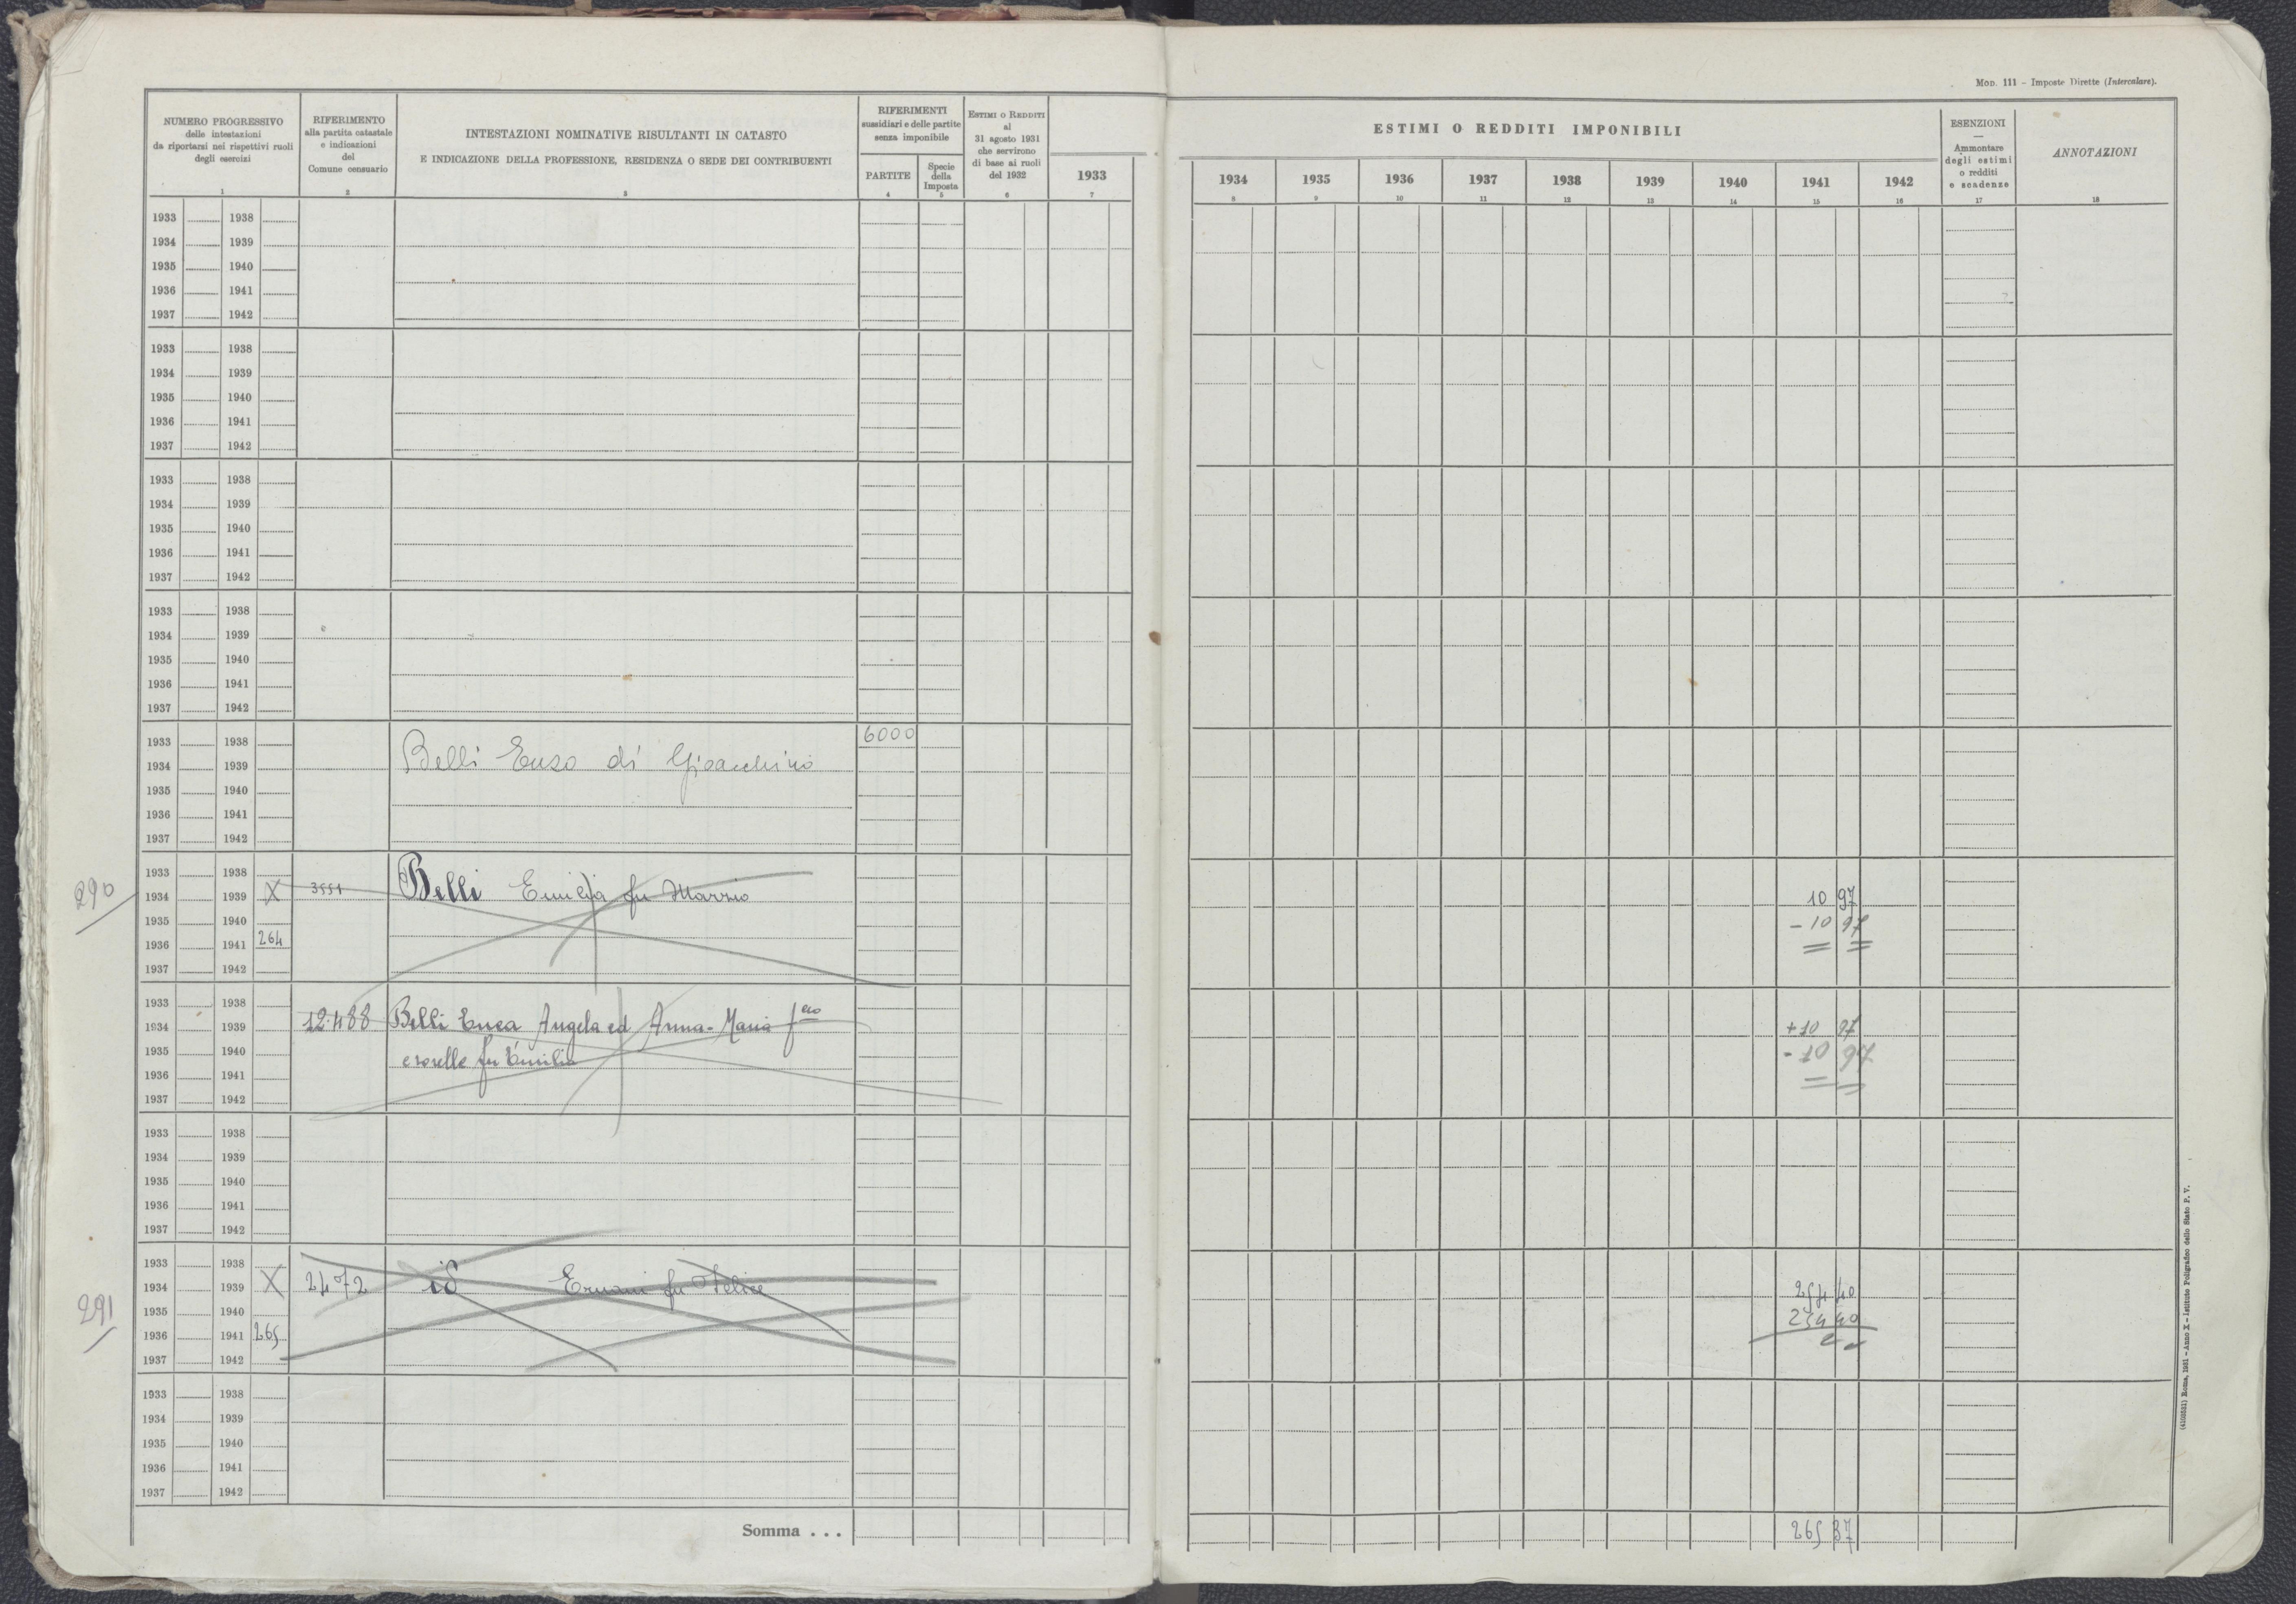 Mod. 111 - Imposte Dirette (Intercalare).
NUMERO PROGRESSIVO
delle intestazioni
da riportarsi nei rispettivi ruoli
degli esercizi
1
RIFERIMENTO
alla partita catastale
e indicazioni
del
Comune censuario
2
INTESTAZIONI NOMINATIVE RISULTANTI IN CATASTO
E INDICAZIONE DELLA PROFESSIONE, RESIDENZA O SEDE DEI CONTRIBUENTI
3
RIFERIMENTI
sussidiari e delle partite
senza imponibile
PARTITE
4
Specie
della
Imposta
5
ESTIMI O REDDITI
al
31 agosto 1931
che servirono
di base ai ruoli
del 1932
6
1933
7
ESTIMI O REDDITI IMPONIBILI
1934 1935 1936 1937 1938 1939 1940 1941 1942
8 9 10 11 12 13 14 15 16
ESENZIONI
—
Ammontare
degli estimi
o redditi
e scadenze
17
ANNOTAZIONI
18
1933 1938
1934 1939
1935 1940
1936 1941
1937 1942
1933 1938
1934 1939
1935 1940
1936 1941
1937 1942
1933 1938
1934 1939
1935 1940
1936 1941
1937 1942
1933 1938
1934 1939
1935 1940
1936 1941
1937 1942
1933 1938 6000
1934 1939 Belli Enzo di Gioacchino
1935 1940
1936 1941
1937 1942
1933 1938
290 1934 1939 X 3551 Belli Emilia fu Marzio 10 97
1935 1940 - 10 97
1936 1941 264
1937 1942
1933 1938
1934 1939 12488 Belli Enea Angela ed Anna-Maria f +10 97
1935 1940 e sorelle fu Emilio - 10 97
1936 1941
1937 1942
1933 1938
1934 1939
1935 1940
1936 1941
1937 1942
1933 1938
291 1934 1939 X 2472 id Ernani fu Felice 254 40
1935 1940 254 40
1936 1941 265
1937 1942
1933 1938
1934 1939
1935 1940
1936 1941
1937 1942
Somma . . . 265 37
(4103531) Roma, 1931 - Anno X - Istituto Poligrafico dello Stato P. V.